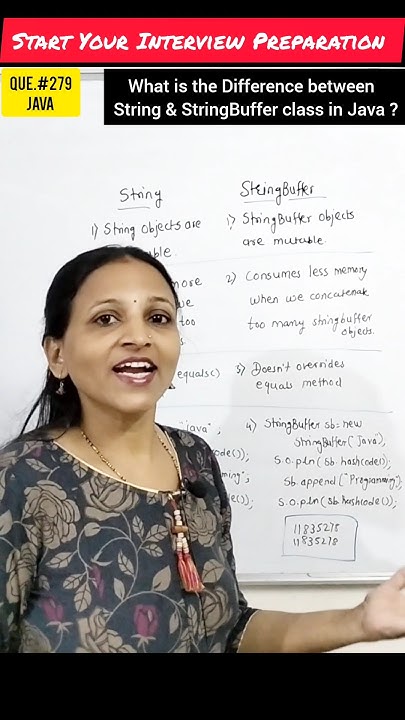 Start Your Interview Preparation
QUE.#279
JAVA
What is the Difference between
String & StringBuffer class in Java ?
String
1) String objects are
more
equals()
"java";
StringBuffer
1) StringBuffer objects
are mutable.
2) Consumes less memory
when we concatenate
too many stringbuffer
objects.
3) Doesn't overrides
equals method
4) StringBuffer sb=new
StringBuffer("Java");
S.O.pln(sb.hashcode());
Sb.append("Programming");
S.O.pln(sb.hashcode());
11835278
11835278